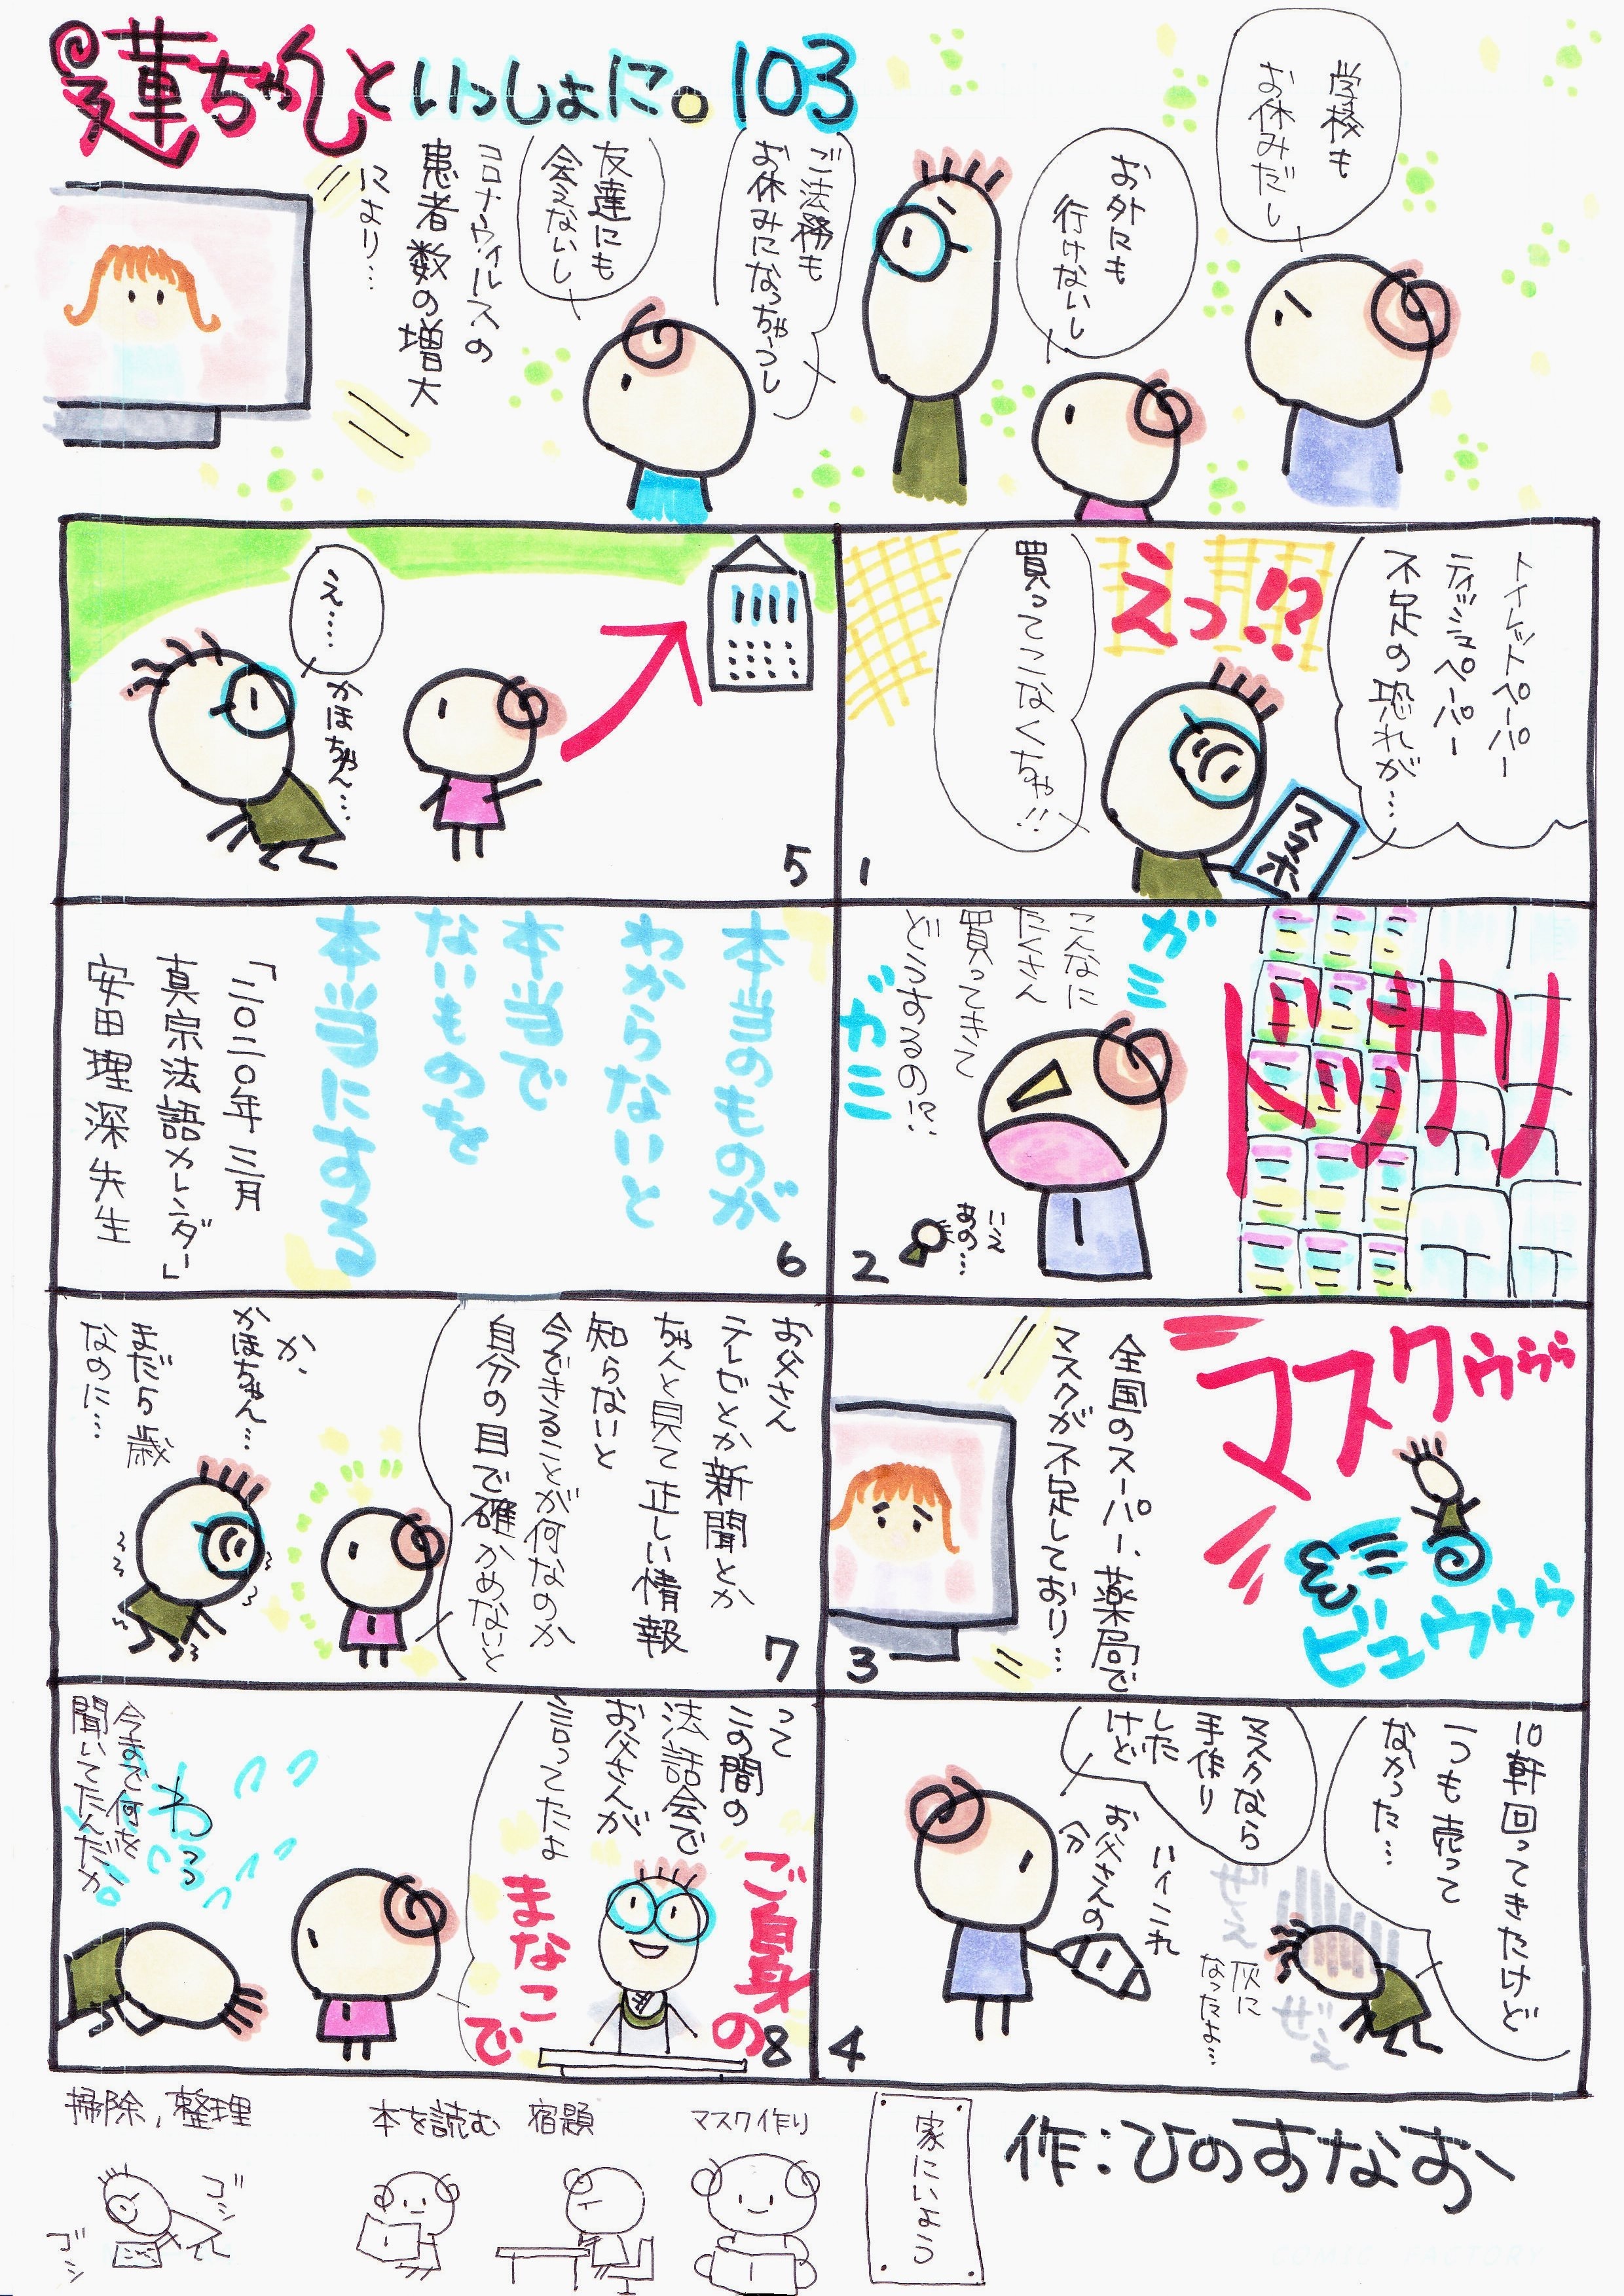 蓮ちゃんといっしょに。103
学校も
お休みだし
お外にも
行けないし
ご法務も
お休みになっちゃうし
友達にも
会えないし
コロナウィルスの
患者数の増大
により…
トイレットペーパー
ティッシュペーパー
不足の恐れが…
えっ!?
買ってこなくちゃ!!
スマホ
1
ドッサリ
ガミ
ガミ
こんなに
たくさん
買ってきて
どうするの!?
いえ
あの…
2
マスクゥゥゥ
ビュウゥゥ
全国のスーパー、薬局で
マスクが不足しており…
3
10軒回ってきたけど
一つも売って
なかった…
ぜぇ
ぜぇ
灰に
なったよ…
マスクなら
手作り
した
けど
ハイこれ
お父さんの
分
4
え…
かほちゃん…
5
本当のものが
わからないと
本当で
ないものを
本当にする
「二〇二〇年 三月
真宗法語カレンダー」
安田理深先生
6
お父さん
テレビとか新聞とか
ちゃんと見て正しい情報
知らないと
今できることが何なのか
自分の目で確かめないと
か、
かほちゃん…
まだ5歳
なのに…
7
って
この間の
法話会で
お父さんが
言ってたよ
ご自身の
まなこで
わっ
今まで何を
聞いてたんだか
8
作:ひのすなお
家にいよう
マスク作り
宿題
本を読む
掃除、整理
ゴシ
ゴシ